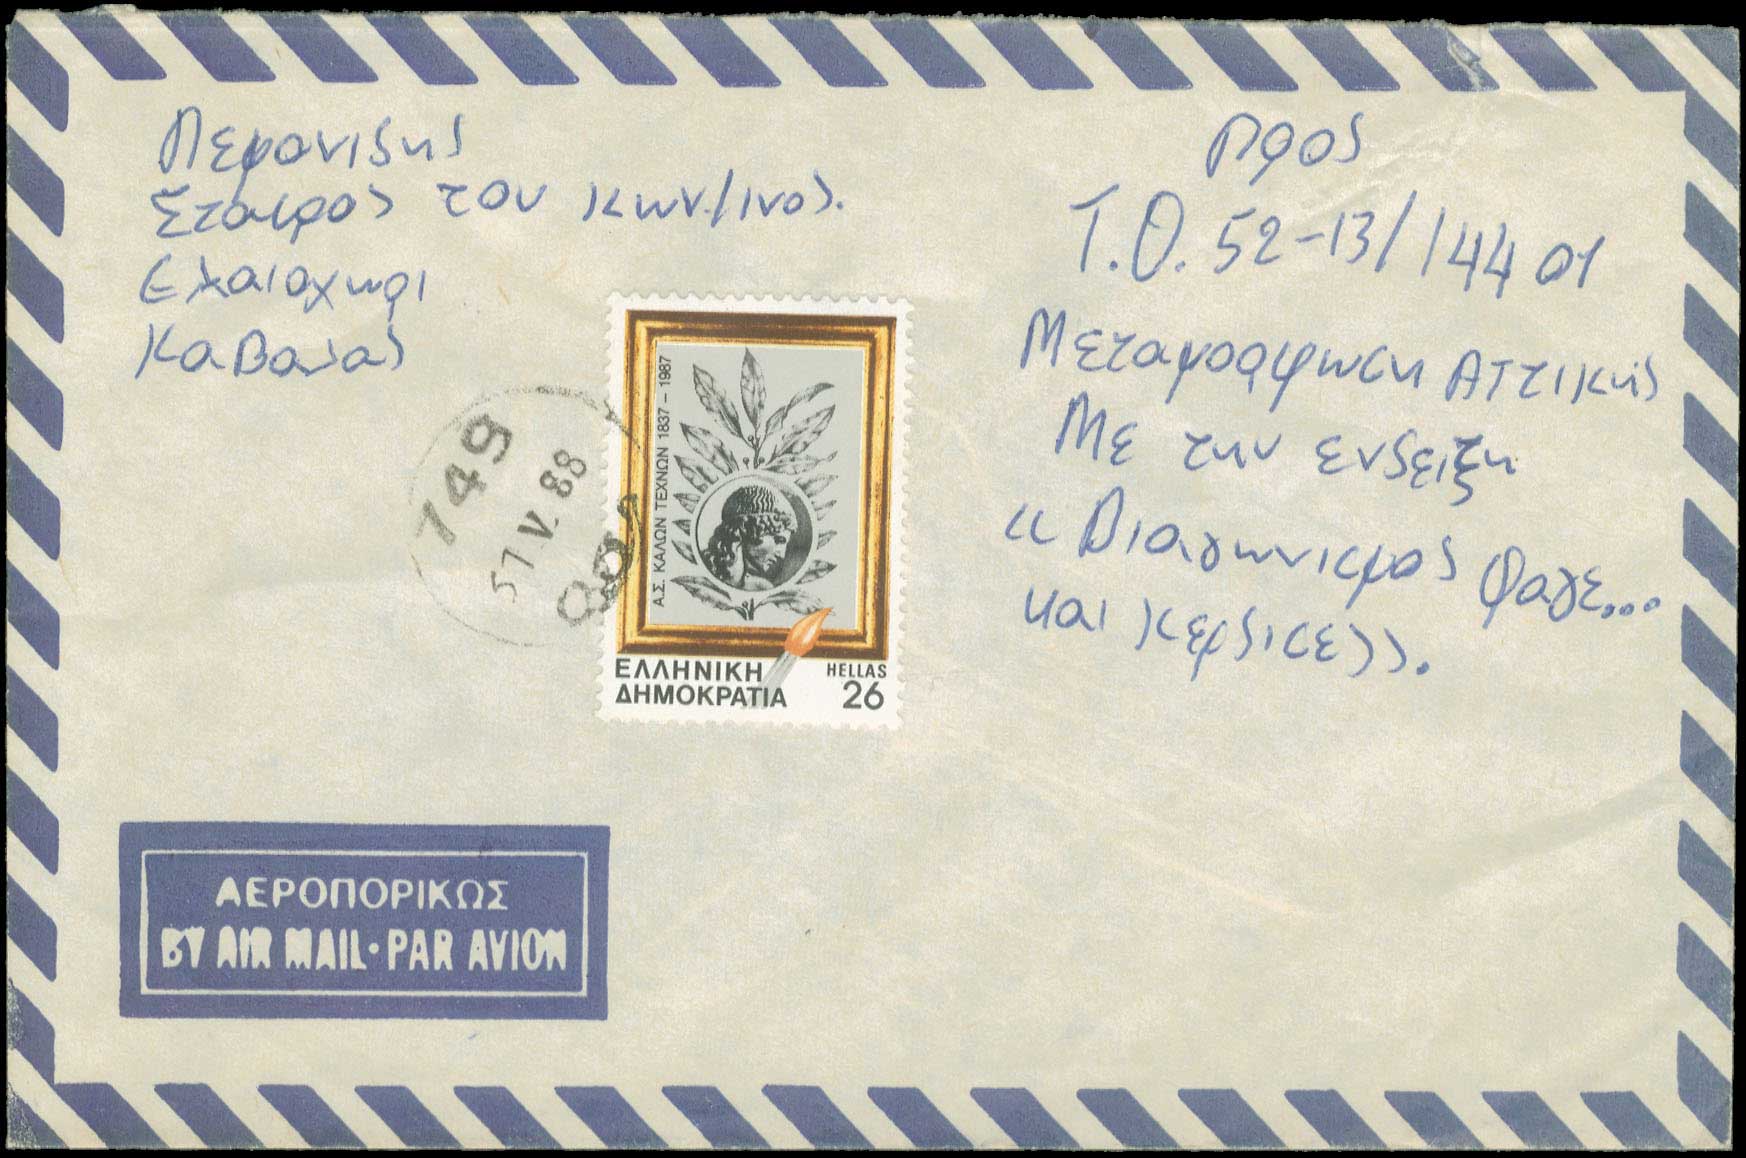 Πεφανιδης
Σταυρος του Κων/ινος.
Ελαιοχωρι
Καβαλας
Προς
Τ.Θ. 52-13/144 01
Μεταμορφωση Αττικης
Με την ενδειξη
«Διαγωνισμος Φαγε...
και κερδισε».
749
V.88
Α.Σ. ΚΑΛΩΝ ΤΕΧΝΩΝ 1837 – 1987
ΕΛΛΗΝΙΚΗ
ΔΗΜΟΚΡΑΤΙΑ
HELLAS
26
ΑΕΡΟΠΟΡΙΚΩΣ
BY AIR MAIL·PAR AVION